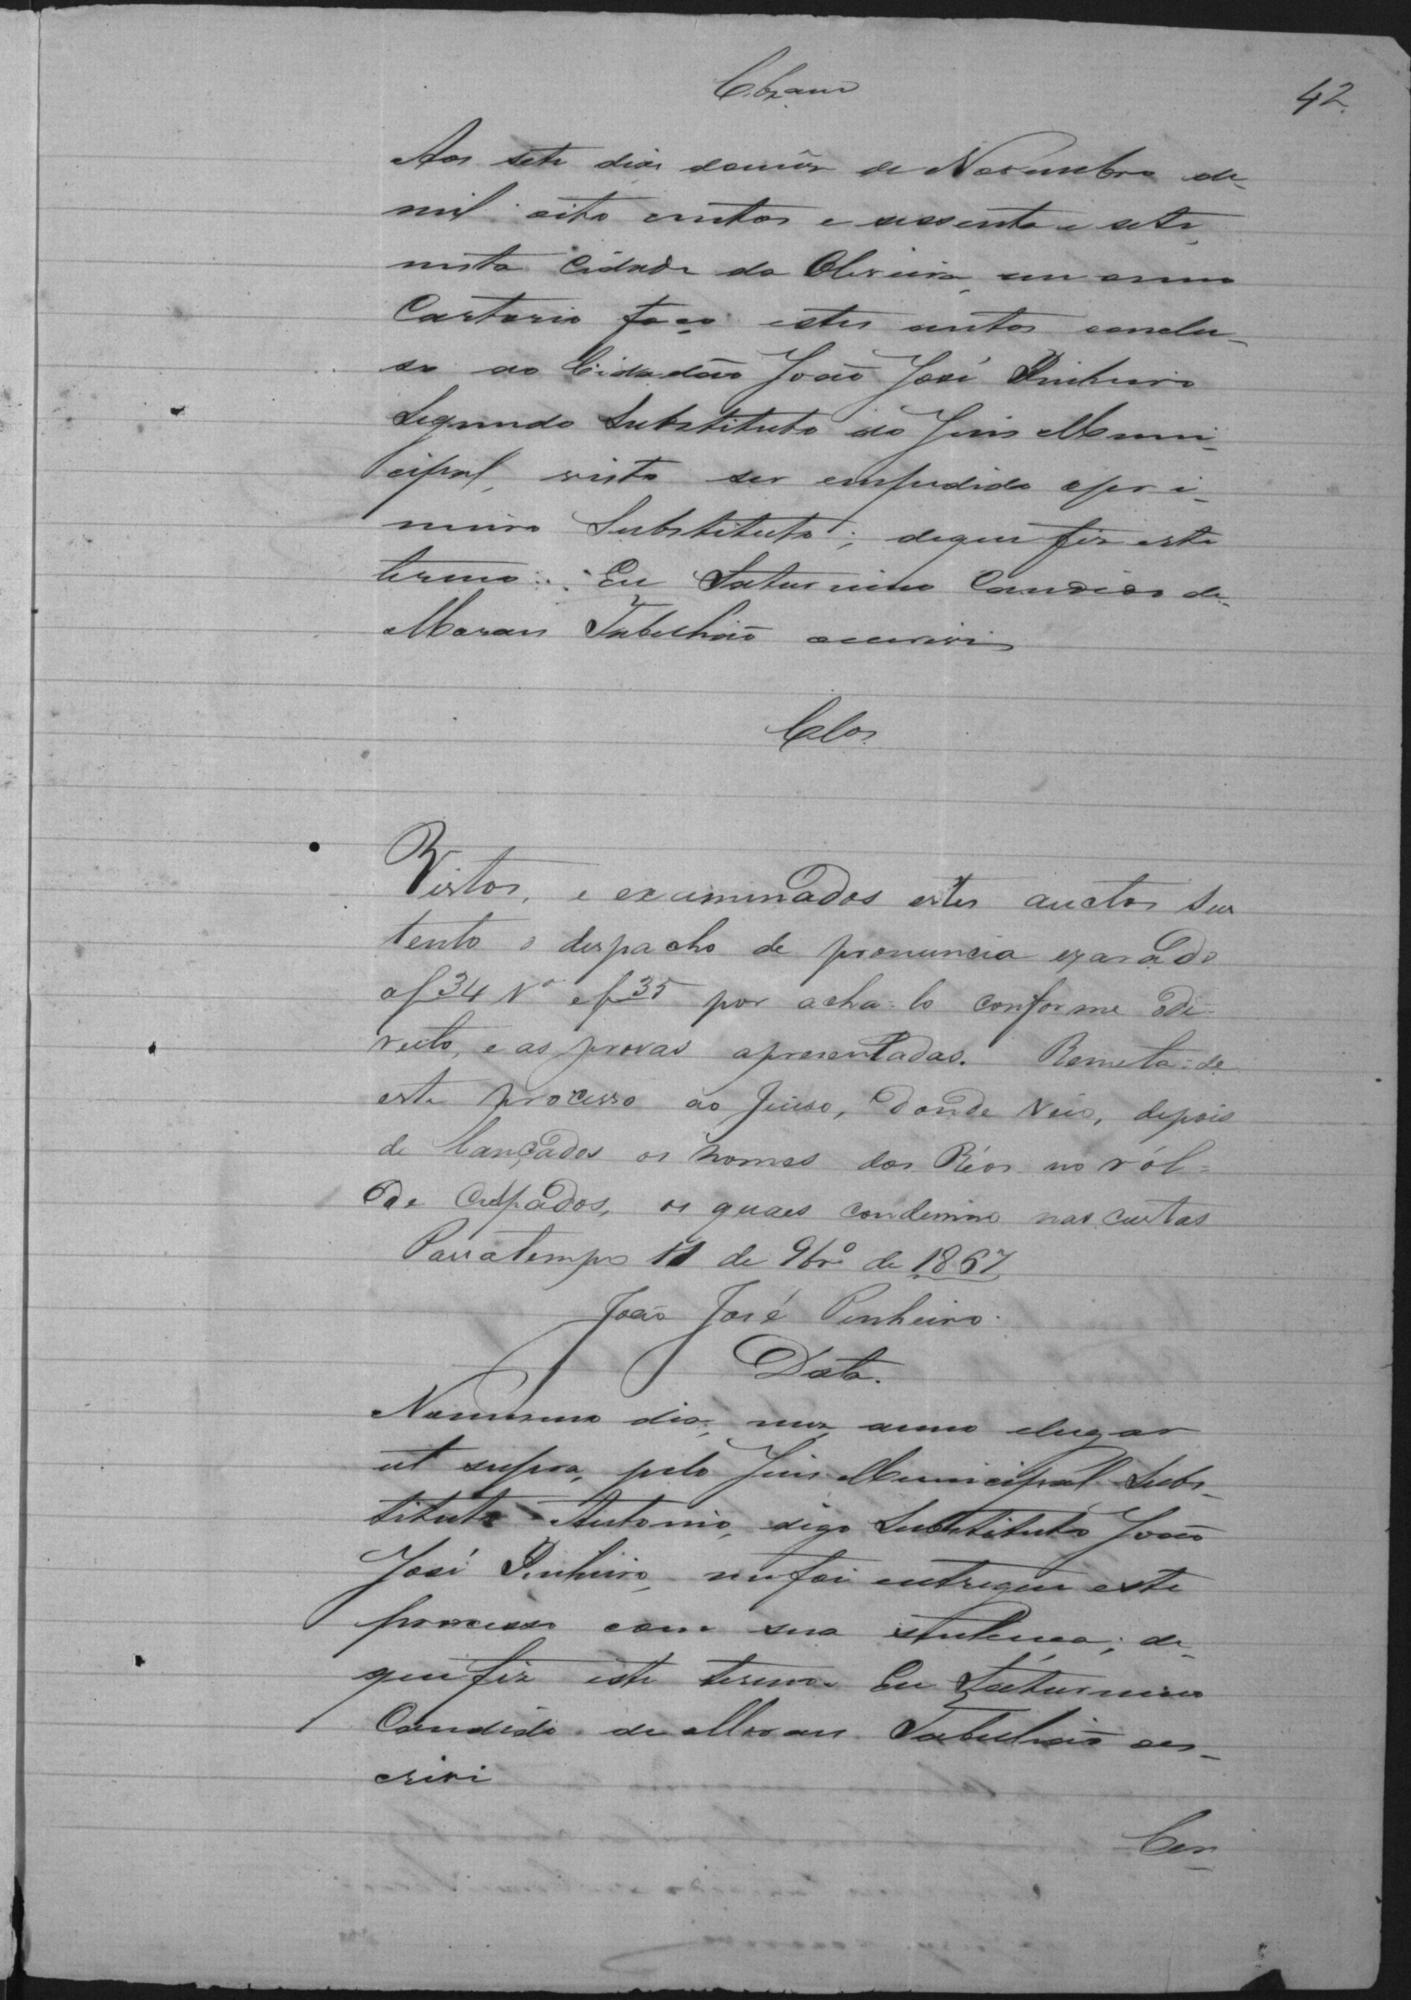 Clzam
42
Aos sete dias do mez de Novembro de
mil oito centos e sessenta e sete,
nesta Cidade da Oliveira, em o meo
Cartorio faço estes autos conclu-
so ao Cidadão João José Pinheiro
Segundo Substituto do Juis Muni-
cipal, visto ser empedido o pri-
meiro Substituto; de que fiz este
termo. Eu Saturnino Candido de
Moraes Tabelião o escrivi
Clos.
Vistos, e examinados estes auctos sus
tento o despacho de pronuncia exarado
a f 34 Vº e f 35 por acha-lo conforme o di-
reito, e as provas apresentadas. Remeta-se
este processo ao Juiso, donde veio, depois
de lançados os nomes dos Réos no ról-
de Culpados, os quaes condemno nas custas
Passatempo 11 de 9brº de 1867
João José Pinheiro.
Data.
No mesmo dia, mez, anno e lugar
ut supra, pelo Juis Municipal Subs-
tituto Antonio, digo Substituto João
José Pinheiro, me foi entregue este
processo com sua sentença; de
que fiz este termo. Eu Saturnino
Candido de Moraes Tabelião oes-
crivi
Cer-